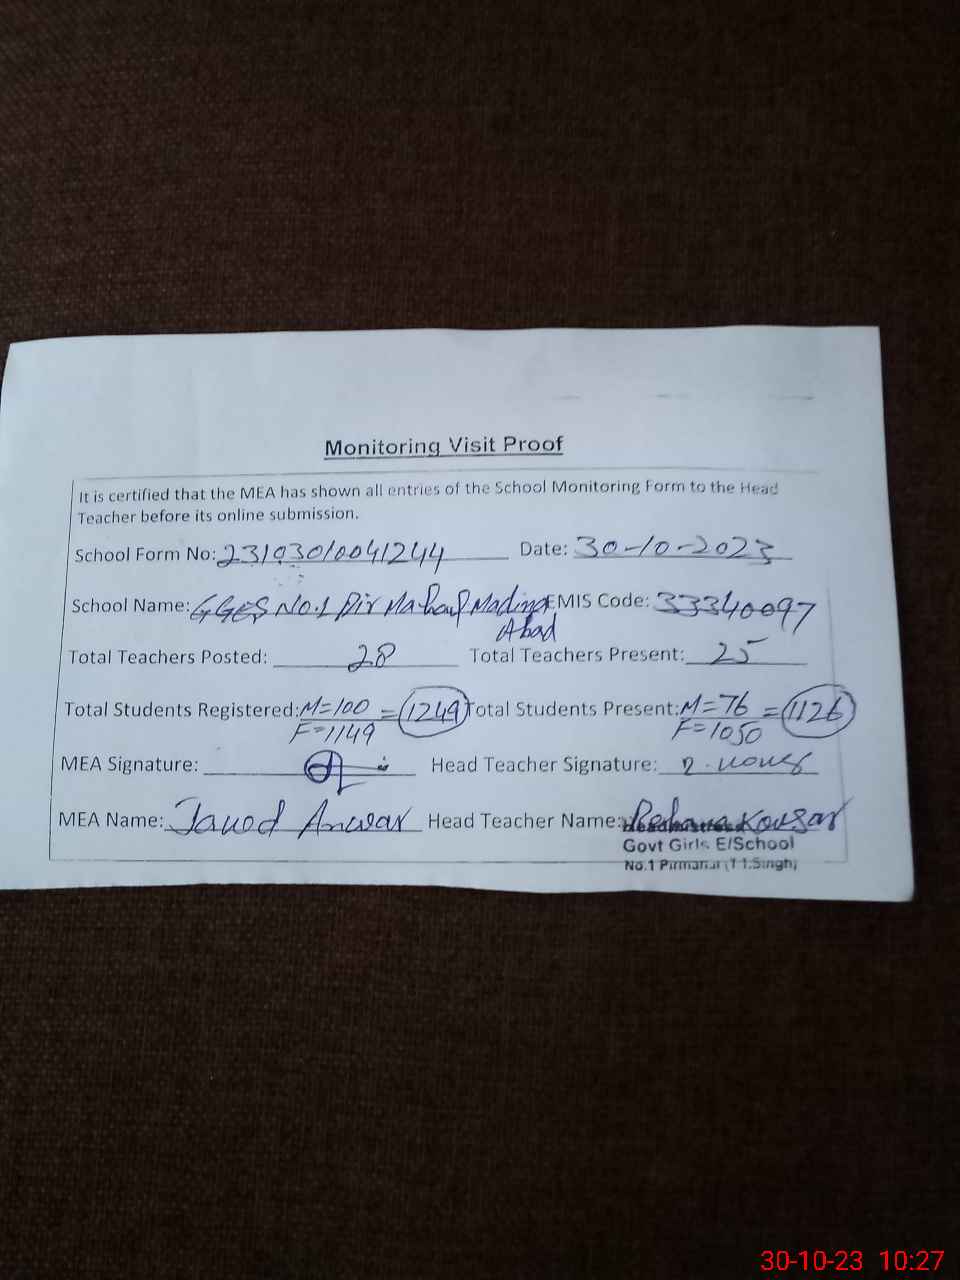 Monitoring Visit Proof
It is certified that the MEA has shown all entries of the School Monitoring Form to the Head
Teacher before its online submission.
School Form No: 23103010041244 Date: 30-10-2023
School Name: GGES No.1 Pir Mahal Madina EMIS Code: 33340097
Abad
Total Teachers Posted: 28 Total Teachers Present: 25
Total Students Registered: M=100 = 1249 Total Students Present: M=76 = 1126
F=1149 F=1050
MEA Signature: Head Teacher Signature:
MEA Name: Javed Anwar Head Teacher Name: Kousar
Headmistress
Govt Girls E/School
No.1 Pirmahal (T.T.Singh)
30-10-23 10:27